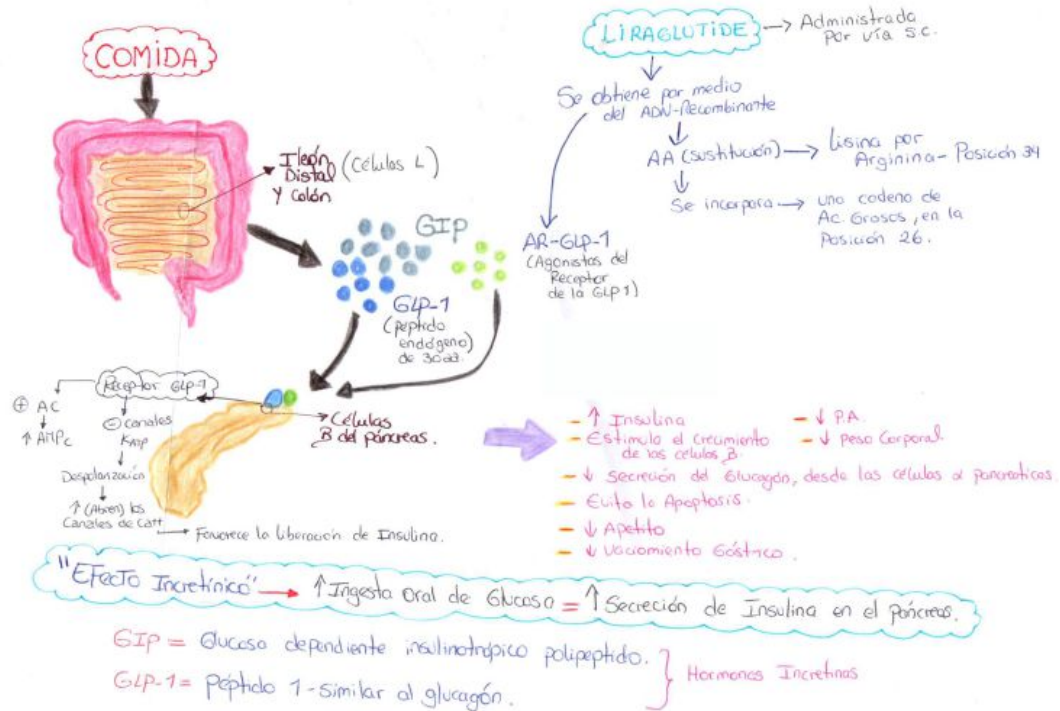 COMIDA
Ileón
Distal
y Colón
(Células L)
GIP
GLP-1
(péptido
endógeno)
de 30aa.
LIRAGLUTIDE
Administrada
por vía s.c.
Se obtiene por medio
del ADN-Recombinante
AA (sustitución)
Lisina por
Arginina - Posición 34
Se incorpora
una cadena de
Ac. Grasos, en la
Posición 26.
AR-GLP-1
(Agonistas del
Receptor
de la GLP1)
Receptor GLP-1
+ AC
↑ AMPc
- canales
KATP
Despolarización
↑ (Abren) los
Canales de Ca++
Favorece la liberación de Insulina.
Células
B del páncreas.
- ↑ Insulina
- Estimula el crecimiento
de las células B.
- ↓ Secreción del Glucagón, desde las células α pancreáticas.
- Evita la Apoptosis.
- ↓ Apetito
- ↓ Vaciamiento Gástrico.
- ↓ P.A.
- ↓ Peso Corporal
"Efecto Incretínico" → ↑ Ingesta Oral de Glucosa = ↑ Secreción de Insulina en el páncreas.
GIP = Glucosa dependiente insulinotrópico polipeptido.
GLP-1 = Péptido 1 - similar al glucagón.
Hormonas Incretinas